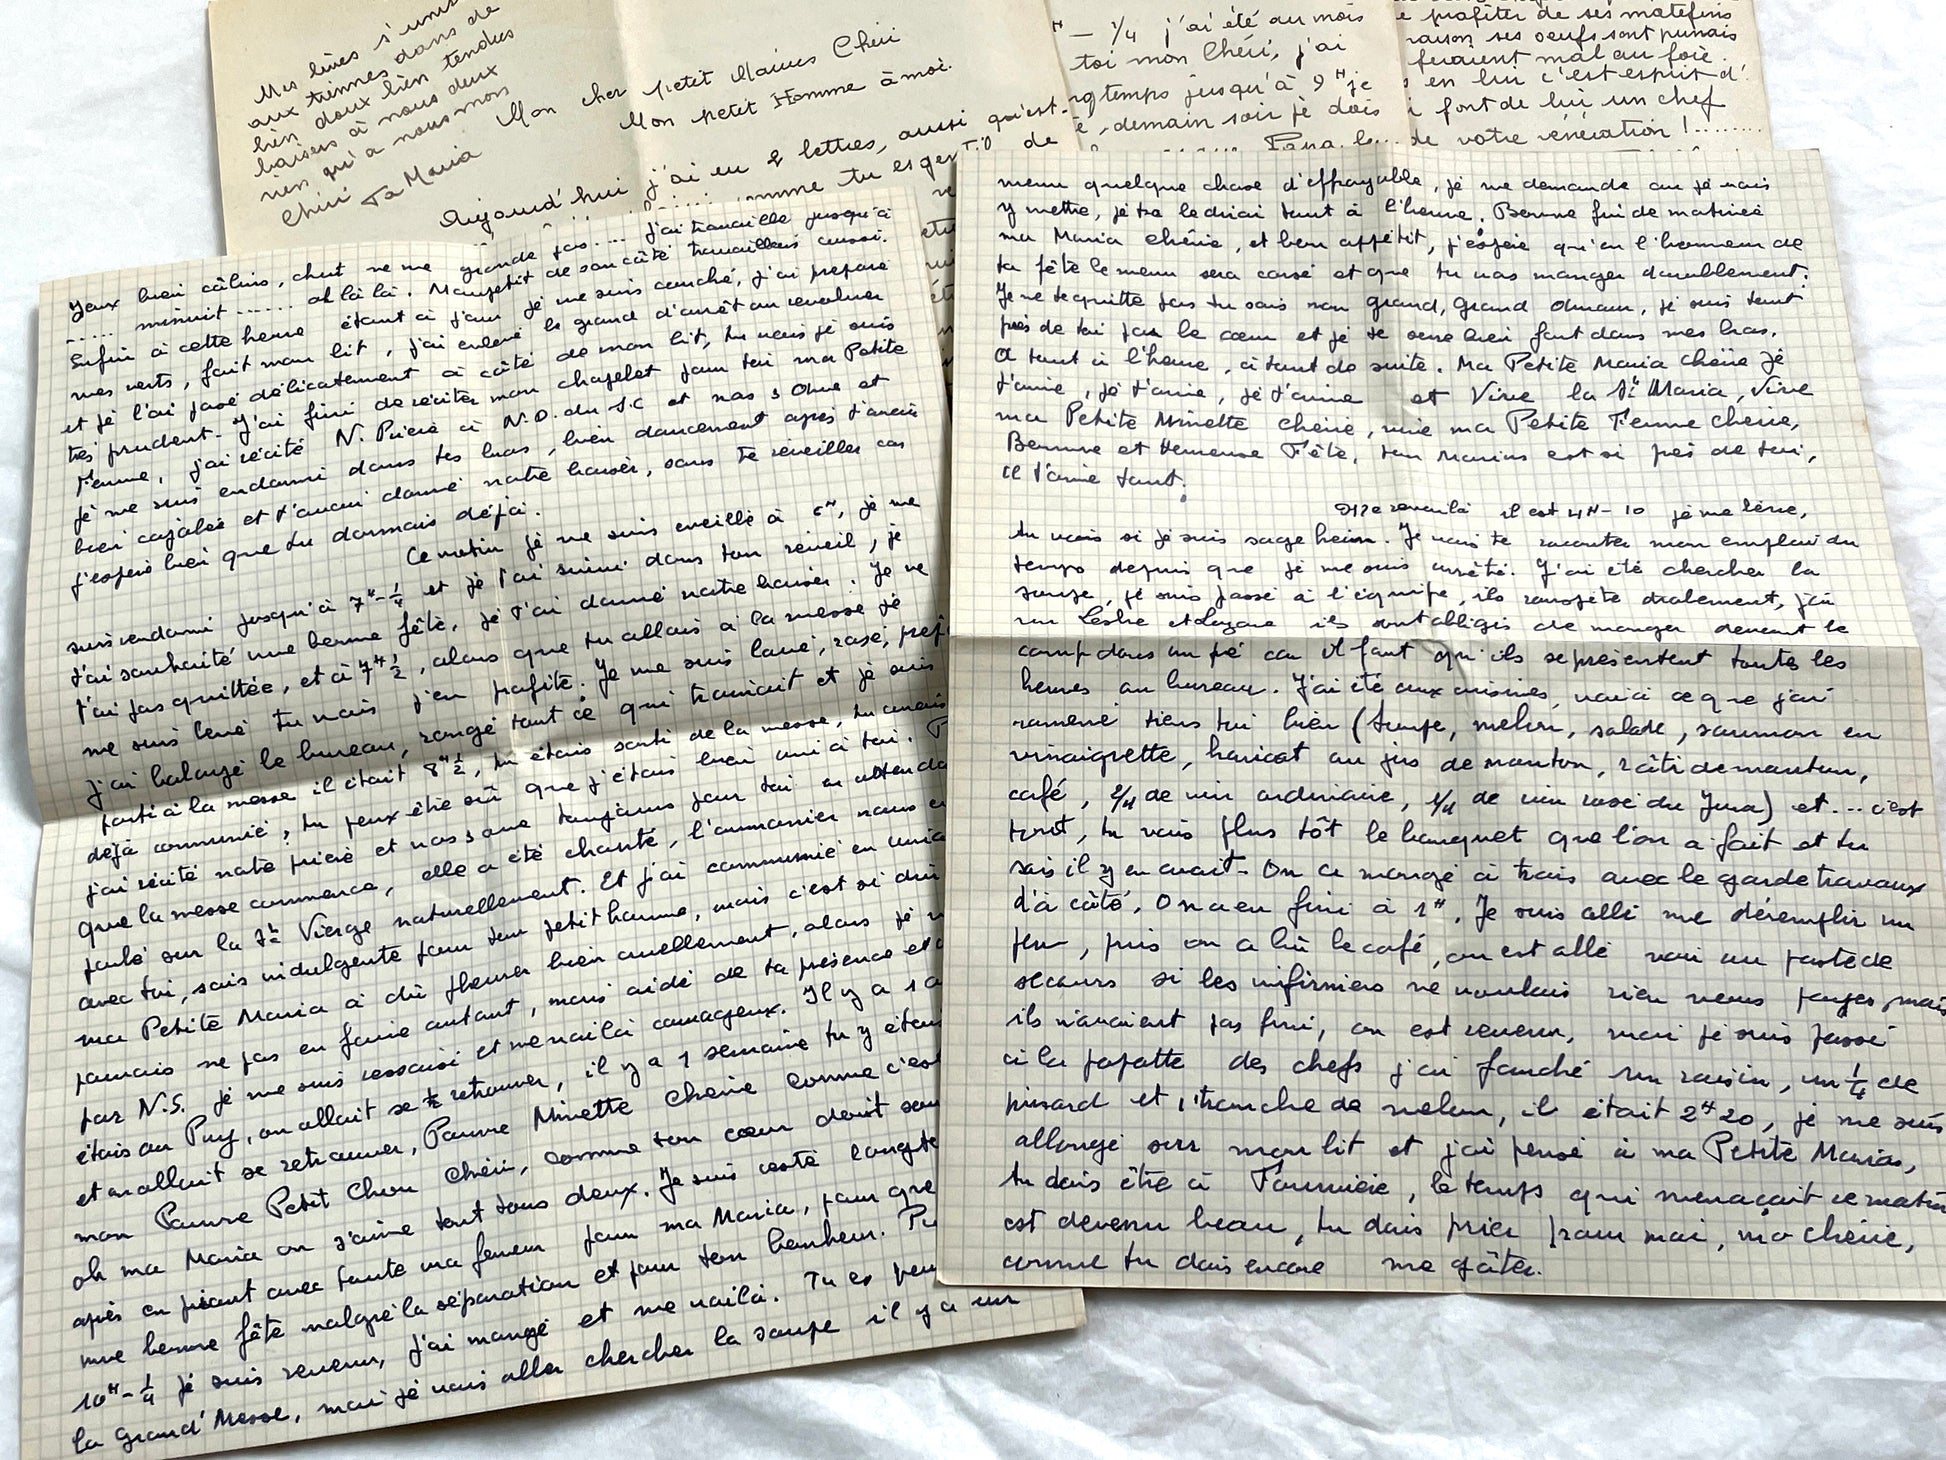 Mes lèvres s'unis
aux tiennes dans de
bien doux bien tendres
baisers à nous deux
rien qu'à nous mon
Chéri Ta Maria
Mon cher petit Marius Chéri
Mon petit Homme à moi.
Aujourd'hui j'ai eu 2 lettres, aussi qu'est-
comme tu es gentil de
H - 1/4 j'ai été au mois
toi mon Chéri, j'ai
ngtemps jusqu'à 9H je
demain soir je dois
Papa
e profiter de ses matefins
raison ses oeufs sont punais
feraient mal au foie.
en lui c'est esprit d'
font de lui un chef
de votre vénération !........
yeux bien câlins, chut ne me gronde pas.... j'ai travaillé jusqu'à
..... minuit ...... oh là là. Mangetit de son côté travaillais aussi.
Enfin à cette heure étant à jour je me suis couché, j'ai préparé
mes verts, fait mon lit, j'ai enlevé le grand d'arrêt au revolver
et je l'ai posé délicatement à côté de mon lit, tu vois je suis
très prudent. J'ai fini de réciter mon chapelet pour toi ma Petite
Femme, j'ai récité N. Prière à N.D. du S.C et nos 3 Ave et
je me suis endormi dans tes bras, bien doucement après t'avoir
bien cajolée et t'avoir donné notre baiser, sans te réveiller car
j'espère bien que tu dormais déjà.
Ce matin je me suis éveillé à 6H, je me
suis rendormi jusqu'à 7H-1/4 et je t'ai suivi dans ton réveil, je
t'ai souhaité une bonne fête, je t'ai donné notre baiser. Je ne
t'ai pas quittée, et à 7H 1/2, alors que tu allais à la messe je
me suis levé tu vois j'en profite. Je me suis lavé, rasé,
j'ai balayé le bureau, rangé tout ce qui trainait et je suis
parti à la messe il était 8H 1/2, tu étais sorti de la messe, tu avais
déjà communié, tu peux être sûr que j'étais bien uni à toi.
j'ai récité notre prière et nos 3 ave toujours pour toi en attenda
que la messe commence, elle a été chanté, l'aumonier nous a
parlé sur la Ste Vierge naturellement. Et j'ai communié en union
avec toi, sois indulgente pour ton petit homme, mais c'est si dur
ma Petite Maria a dû pleurer bien cruellement, alors je
pouvais ne pas en faire autant, mais aidé de ta présence et
par N.S. je me suis ressaisi et me voilà courageux. Il y a 1 a
étais au Puy, on allait se retrouver, il y a 1 semaine tu y étais
et on allait se retrouver, Pauvre Minette Chérie comme c'est
mon Pauvre Petit Chou Chéri, comme ton cœur doit sou
oh ma Maria on s'aime tant tous deux. Je suis resté longte
après en priant avec toute ma ferveur pour ma Maria, pour que
une bonne fête malgré la séparation et pour ton bonheur.
10H-1/4 je suis revenu, j'ai mangé et me voilà. Tu es peu
la Grand'Messe, moi je vais aller chercher la soupe il y a un
menu quelque chose d'effroyable, je me demande où je vais
y mettre, je te le dirai tout à l'heure. Bonne fin de matinée
ma Maria chérie, et bon appétit, j'espère qu'en l'honneur de
ta fête le menu sera corsé et que tu vas manger doublement.
Je ne te quitte pas tu sais mon grand, grand Amour, je suis tout
près de toi par le cœur et je te serre bien fort dans mes bras.
A tout à l'heure, à tout de suite. Ma Petite Maria chérie je
t'aime, je t'aime, je t'aime et Vive la Ste Maria, vive
ma Petite Minette chérie, vive ma Petite Femme chérie,
Bonne et Heureuse Fête, ton Marius est si près de toi,
il t'aime tant.
Me revoilà il est 4H-10 je me lève,
tu vois si je suis sage hein. Je vais te raconter mon emploi du
temps depuis que je me suis arrêté. J'ai été chercher la
soupe, je suis passé à l'équipe, ils rouspète drolement, j'ai
vu Leshe et Lazare ils sont obligés de manger devant le
camp dans un pé car il faut qu'ils se présentent toutes les
heures au bureau. J'ai été aux cuisines, voici ce que j'ai
ramené tiens toi bien (Soupe, melon, salade, saumon en
vinaigrette, haricot au jus de mouton, rôti de mouton,
café, 2/4 de vin ordinaire, 1/4 de vin rosé du Jura) et... c'est
tout, tu vois plus tôt le banquet que l'on a fait et tu
sais il y en avait. On a mangé à trois avec le garde travaux
d'à côté. On a eu fini à 1H. Je suis allé me déremplir un
peu, puis on a bu le café, on est allé voir au poste de
secours si les infirmiers ne voulais rien nous payer, mais
ils n'avaient pas fini, on est revenu, moi je suis passé
à la popotte des chefs j'ai fauché un raisin, un 1/4 de
pinard et 1 tranche de melon, il était 2H20, je me suis
allongé sur mon lit et j'ai pensé à ma Petite Maria,
tu dois être à Fourvière, le temps qui menaçait ce matin
est devenu beau, tu dois prier pour moi, ma chérie,
comme tu dois encore me gâter.